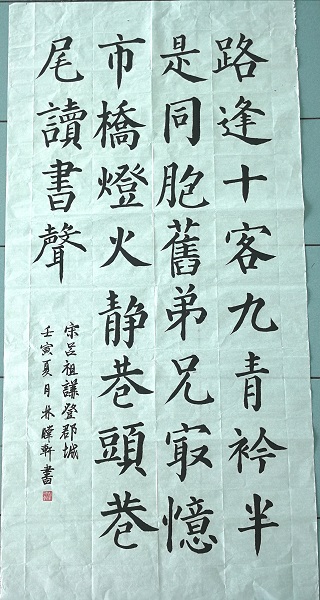 路逢十客九青衿半
是同胞舊弟兄㝡憶
市橋燈火静巷頭巷
尾讀書聲
宋吕祖謙登郡城
壬寅夏月林暐軒書